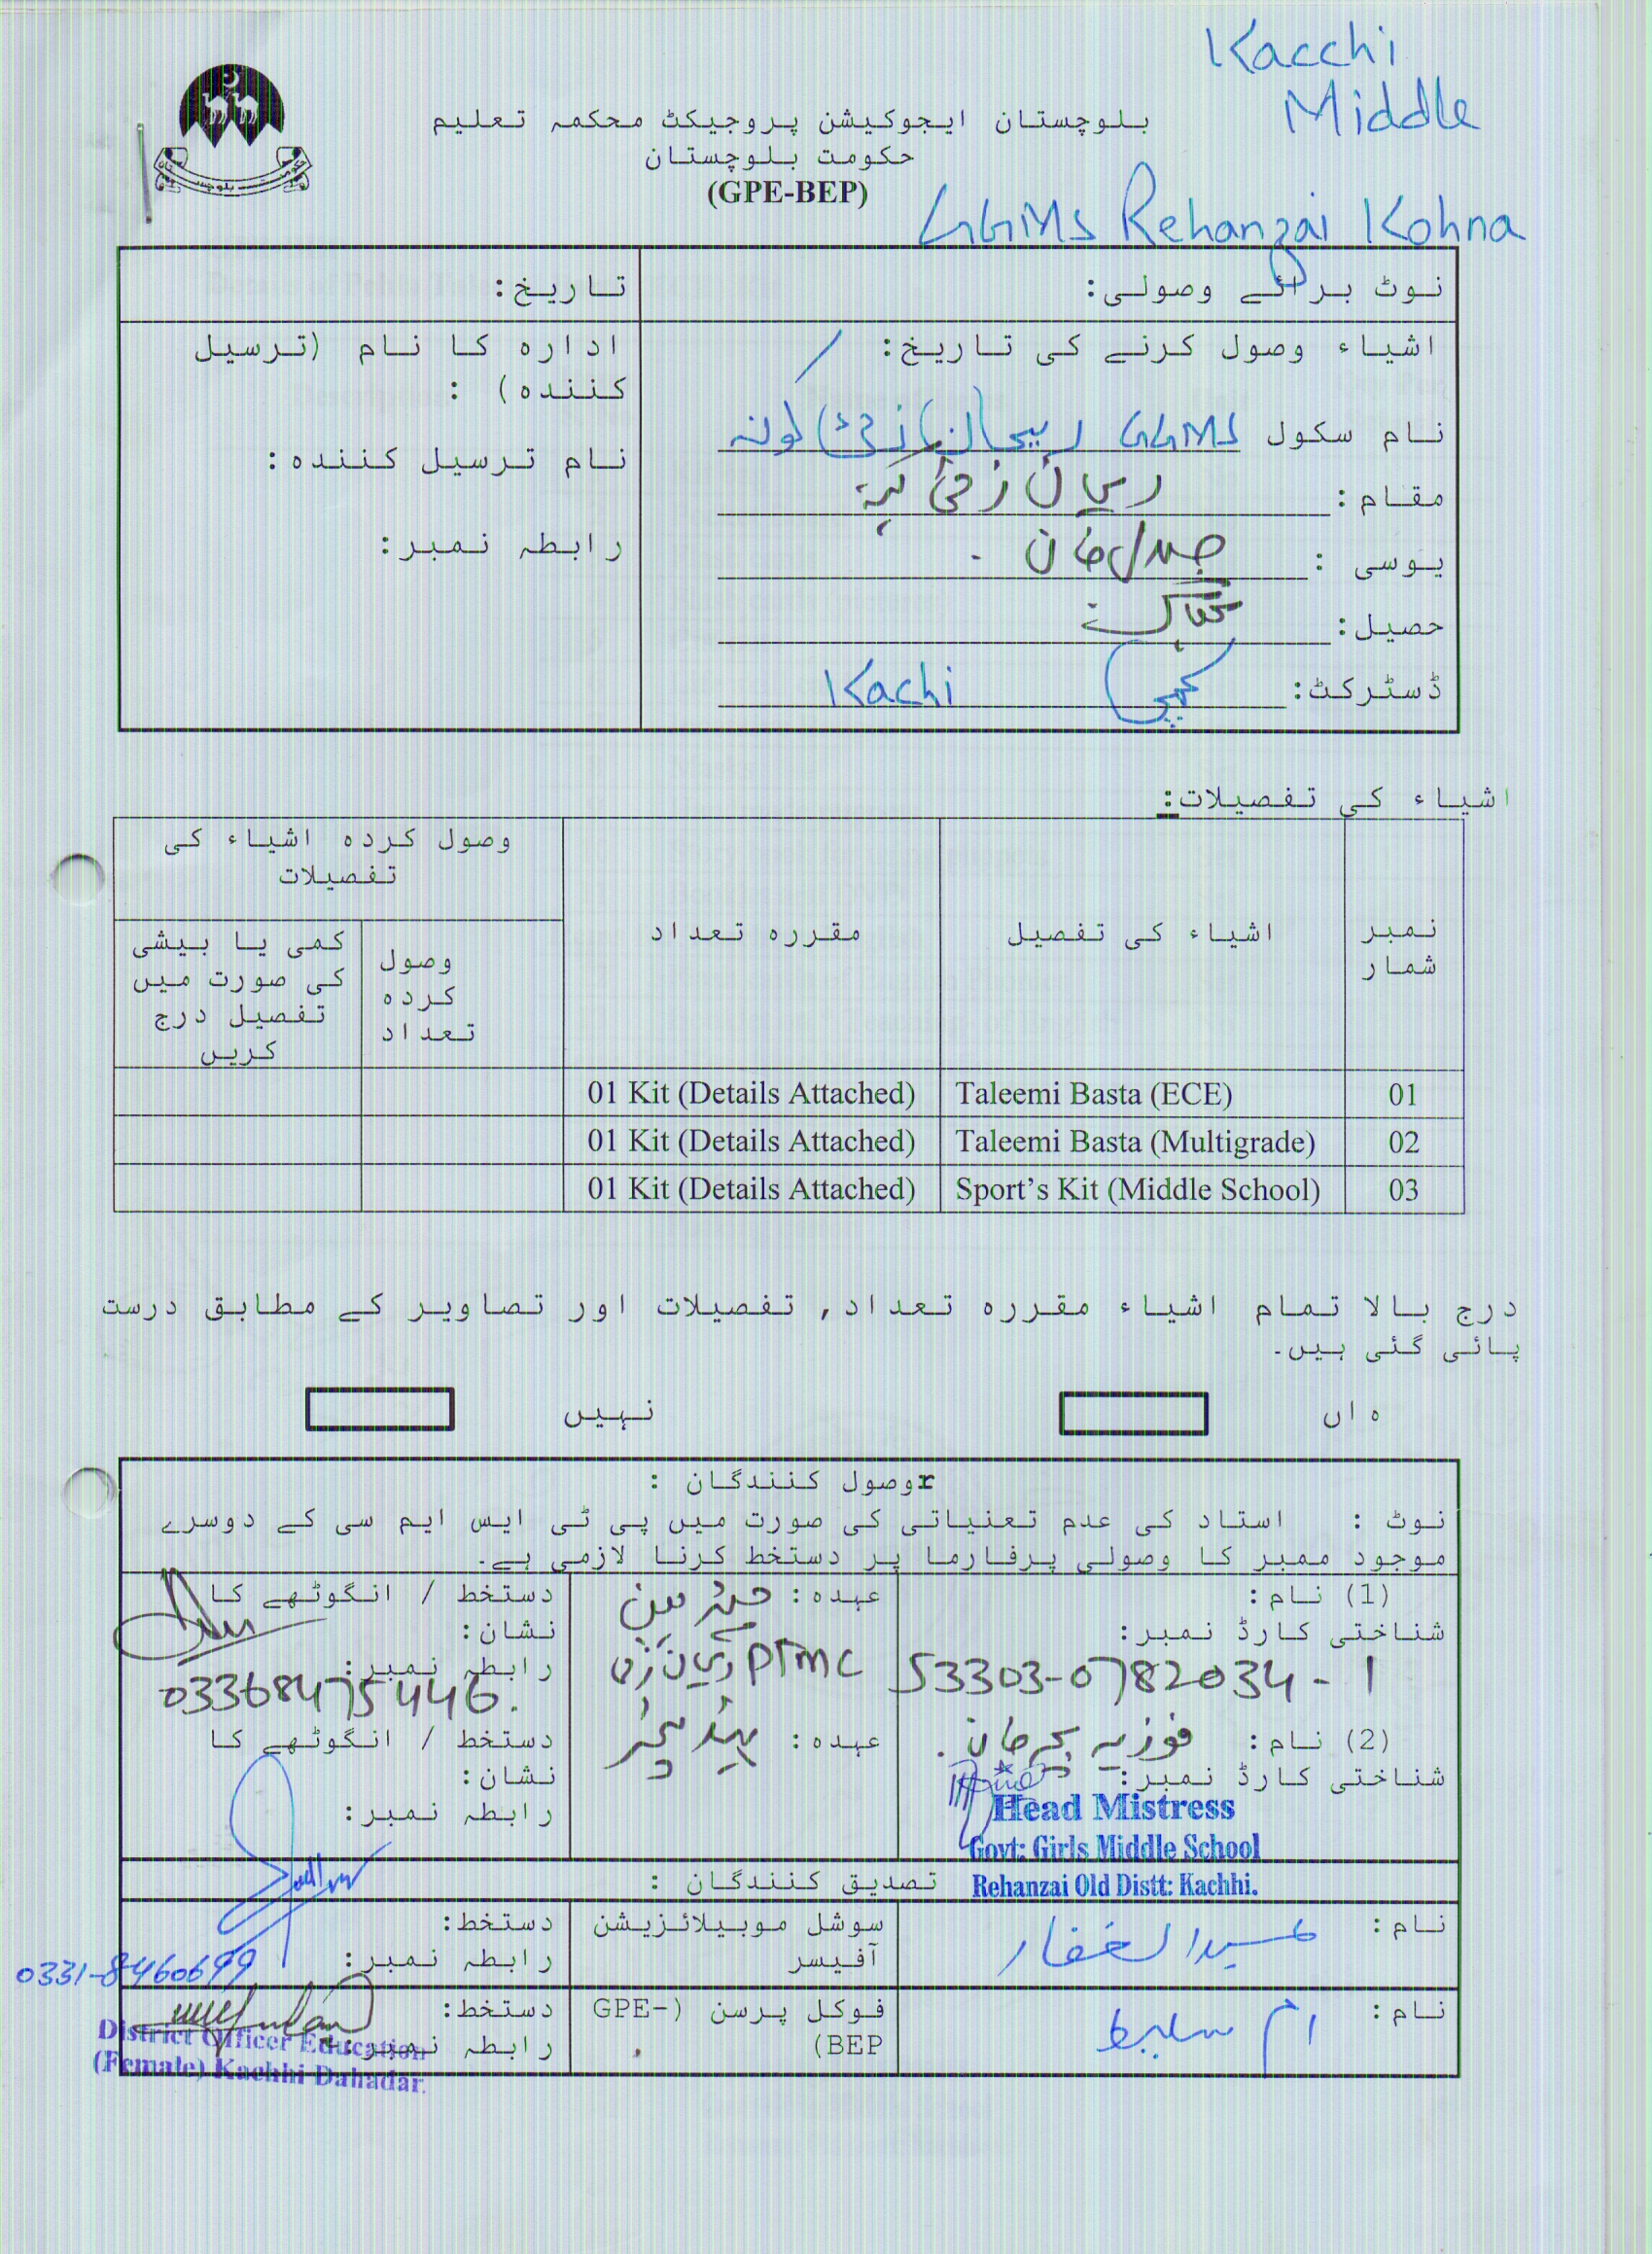 Kacchi
Middle
بلوچستان ایجوکیشن پروجیکٹ محکمہ تعلیم
حکومت بلوچستان
(GPE-BEP)
GGMS Rehanzai Kohna
نوٹ برائے وصولی:
تاریخ:
اشیاء وصول کرنے کی تاریخ: /
نام سکول GGMS ریحان زئی کونہ
مقام: ریحان زئی
یوسی : جلال خان
حصیل:
ڈسٹرکٹ: کچھی Kachi
ادارہ کا نام (ترسیل
کنندہ) :
نام ترسیل کنندہ:
رابطہ نمبر:
اشیاء کی تفصیلات:
نمبر شمار
اشیاء کی تفصیل
مقررہ تعداد
وصول کردہ اشیاء کی تفصیلات
وصول کردہ تعداد
کمی یا بیشی کی صورت میں تفصیل درج کریں
01 Taleemi Basta (ECE) 01 Kit (Details Attached)
02 Taleemi Basta (Multigrade) 01 Kit (Details Attached)
03 Sport's Kit (Middle School) 01 Kit (Details Attached)
درج بالا تمام اشیاء مقررہ تعداد, تفصیلات اور تصاویر کے مطابق درست
پائی گئی ہیں۔
ہاں
نہیں
rوصول کنندگان :
نوٹ : استاد کی عدم تعنیاتی کی صورت میں پی ٹی ایس ایم سی کے دوسرے
موجود ممبر کا وصولی پرفارما پر دستخط کرنا لازمی ہے۔
(1) نام:
شناختی کارڈ نمبر:
53303-0782034-1
عہدہ: چیئرمین
PTMC ریحان زئی
دستخط / انگوٹھے کا
نشان:
رابطہ نمبر:
03368475446
(2) نام: فوزیہ
شناختی کارڈ نمبر:
Head Mistress
Govt: Girls Middle School
Rehanzai Old Distt: Kachhi.
عہدہ: ہیڈ ٹیچر
دستخط / انگوٹھے کا
نشان:
رابطہ نمبر:
تصدیق کنندگان :
نام: عبدالغفار
سوشل موبیلائزیشن
آفیسر
دستخط:
رابطہ نمبر:
0331-8460699
نام:
فوکل پرسن (GPE-
BEP)
دستخط:
رابطہ نمبر:
District Officer Education
(Female) Kachhi Dahadar.